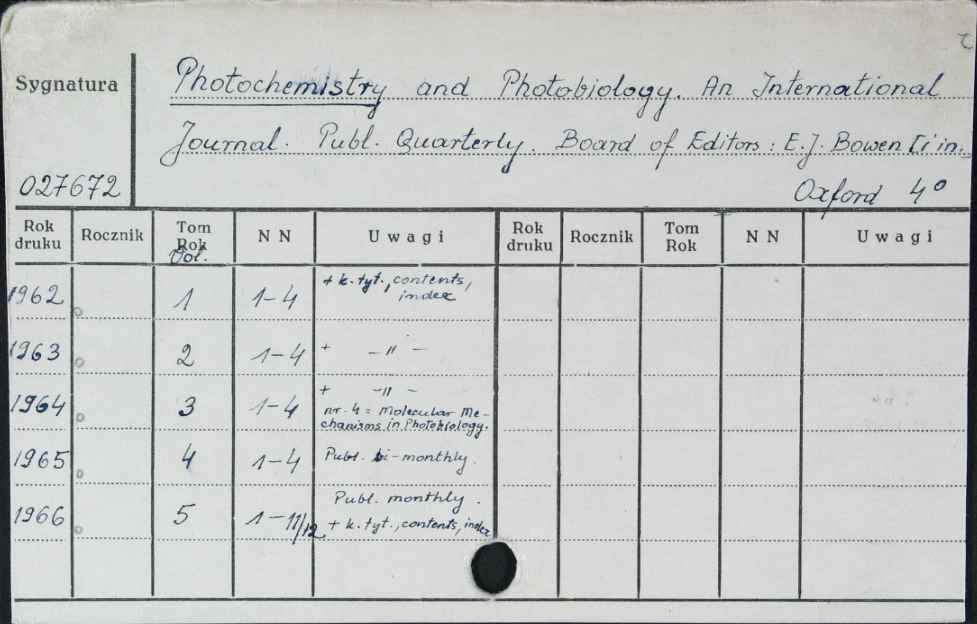 Sygnatura
Photochemistry and Photobiology. An International
Journal. Publ. Quarterly. Board of Editors: E.J. Bowen [i in.
027672
Oxford 4°
Rok druku Rocznik Tom Rok Vol. N N Uwagi Rok druku Rocznik Tom Rok N N Uwagi
1962 1 1-4 + k. tyt., contents, index
1963 2 1-4 + -"-
1964 3 1-4 + -"-
nr. 4 = Molecular Me-
chanisms in Photobiology.
1965 4 1-4 Publ. bi-monthly.
1966 5 1-11/12 Publ. monthly.
+ k. tyt., contents, index